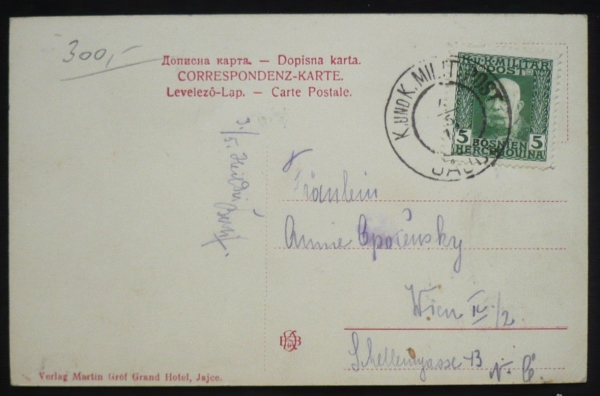 300,-
Дописна карта. — Dopisna karta.
CORRESPONDENZ-KARTE.
Levelező-Lap. — Carte Postale.
K. UND K. MILIT. POST
JAJCE
K.u.K. MILITÄR
POST
5 5
BOSNIEN
HERCEGOVINA
Fräulein
Annie Opočensky
Wien IV/2
Schelleingasse 13
Verlag Martin Gröf Grand Hotel, Jajce.